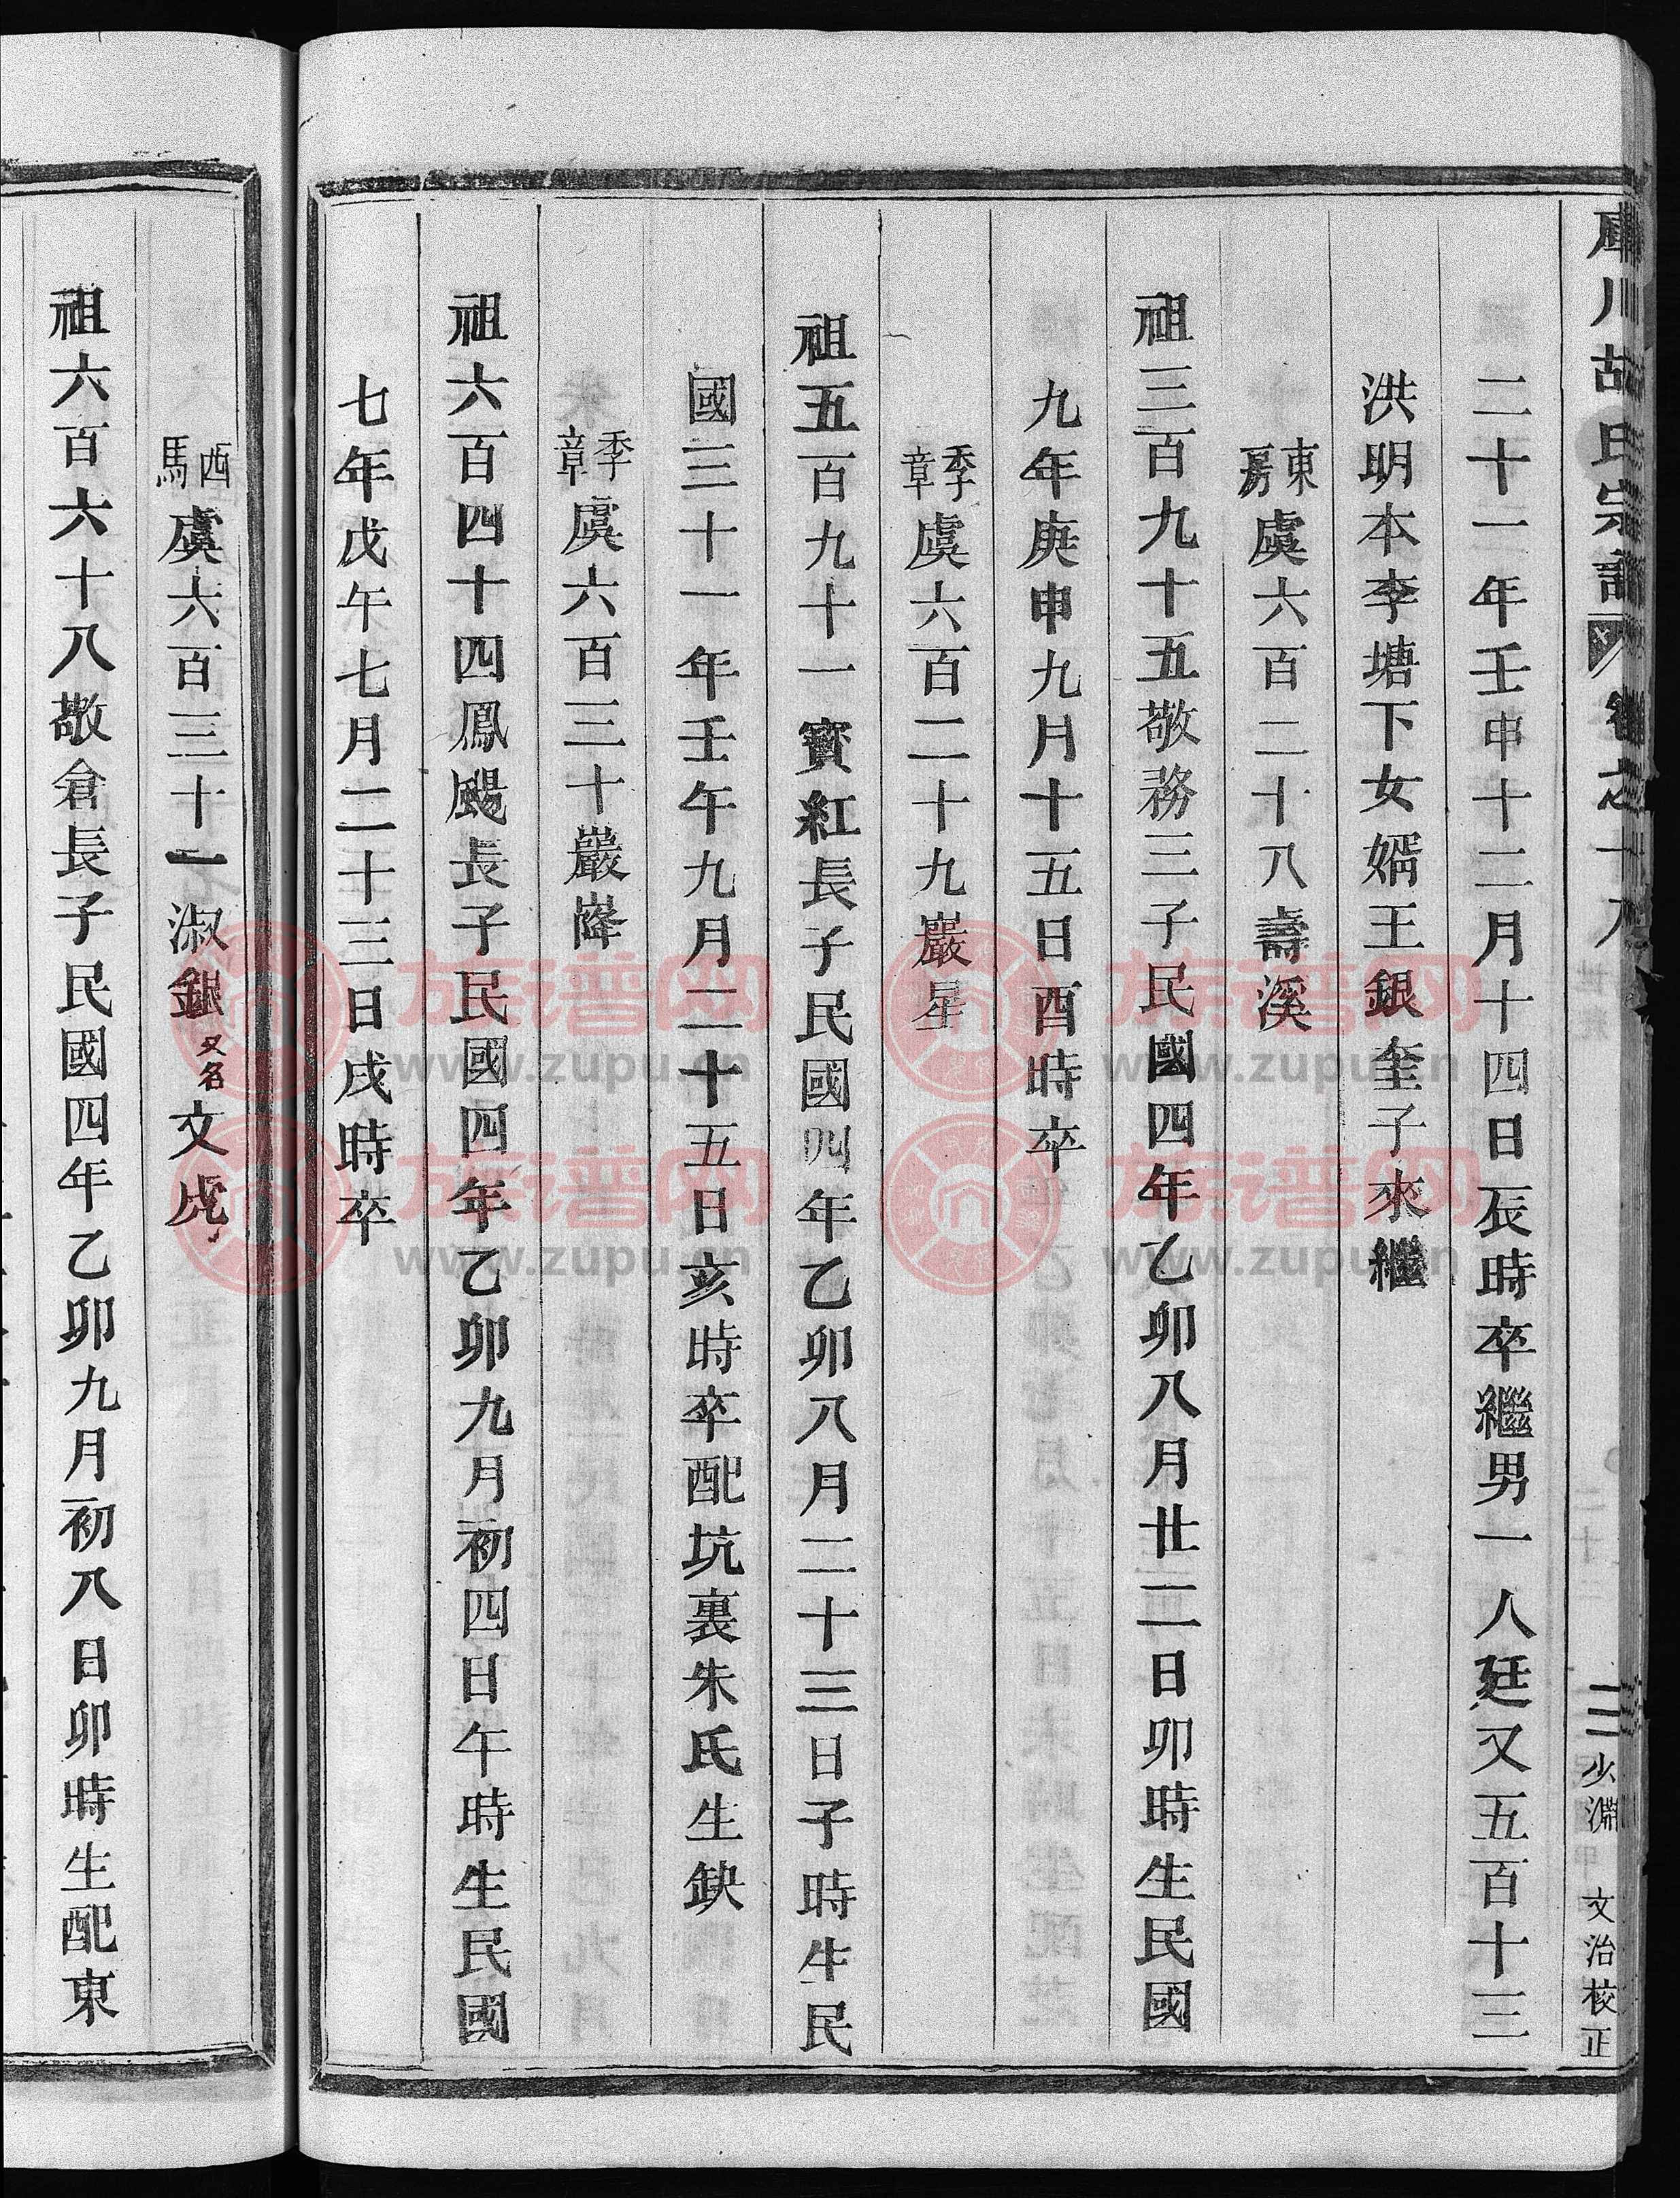 庫川胡氏宗譜 卷之十八 少淵 文治校正
二十一年壬申十二月十四日辰時卒繼男一人廷又五百十三
洪明本李塘下女婿王銀奎子來繼
東房虞六百二十八壽溪
祖三百九十五敬務三子民國四年乙卯八月廿二日卯時生民國
九年庚申九月十五日酉時卒
季章虞六百二十九巖星
祖五百九十一寶紅長子民國四年乙卯八月二十三日子時生民
國三十一年壬午九月二十五日亥時卒配坑裏朱氏生缺
季章虞六百三十巖峰
祖六百四十四鳳颺長子民國四年乙卯九月初四日午時生民國
七年戊午七月二十三日戌時卒
西馬虞六百三十一淑銀又名文虎
祖六百六十八敬倉長子民國四年乙卯九月初八日卯時生配東
族谱网
www.zupu.cn
族谱网
www.zupu.cn
族谱网
www.zupu.cn
族谱网
www.zupu.cn